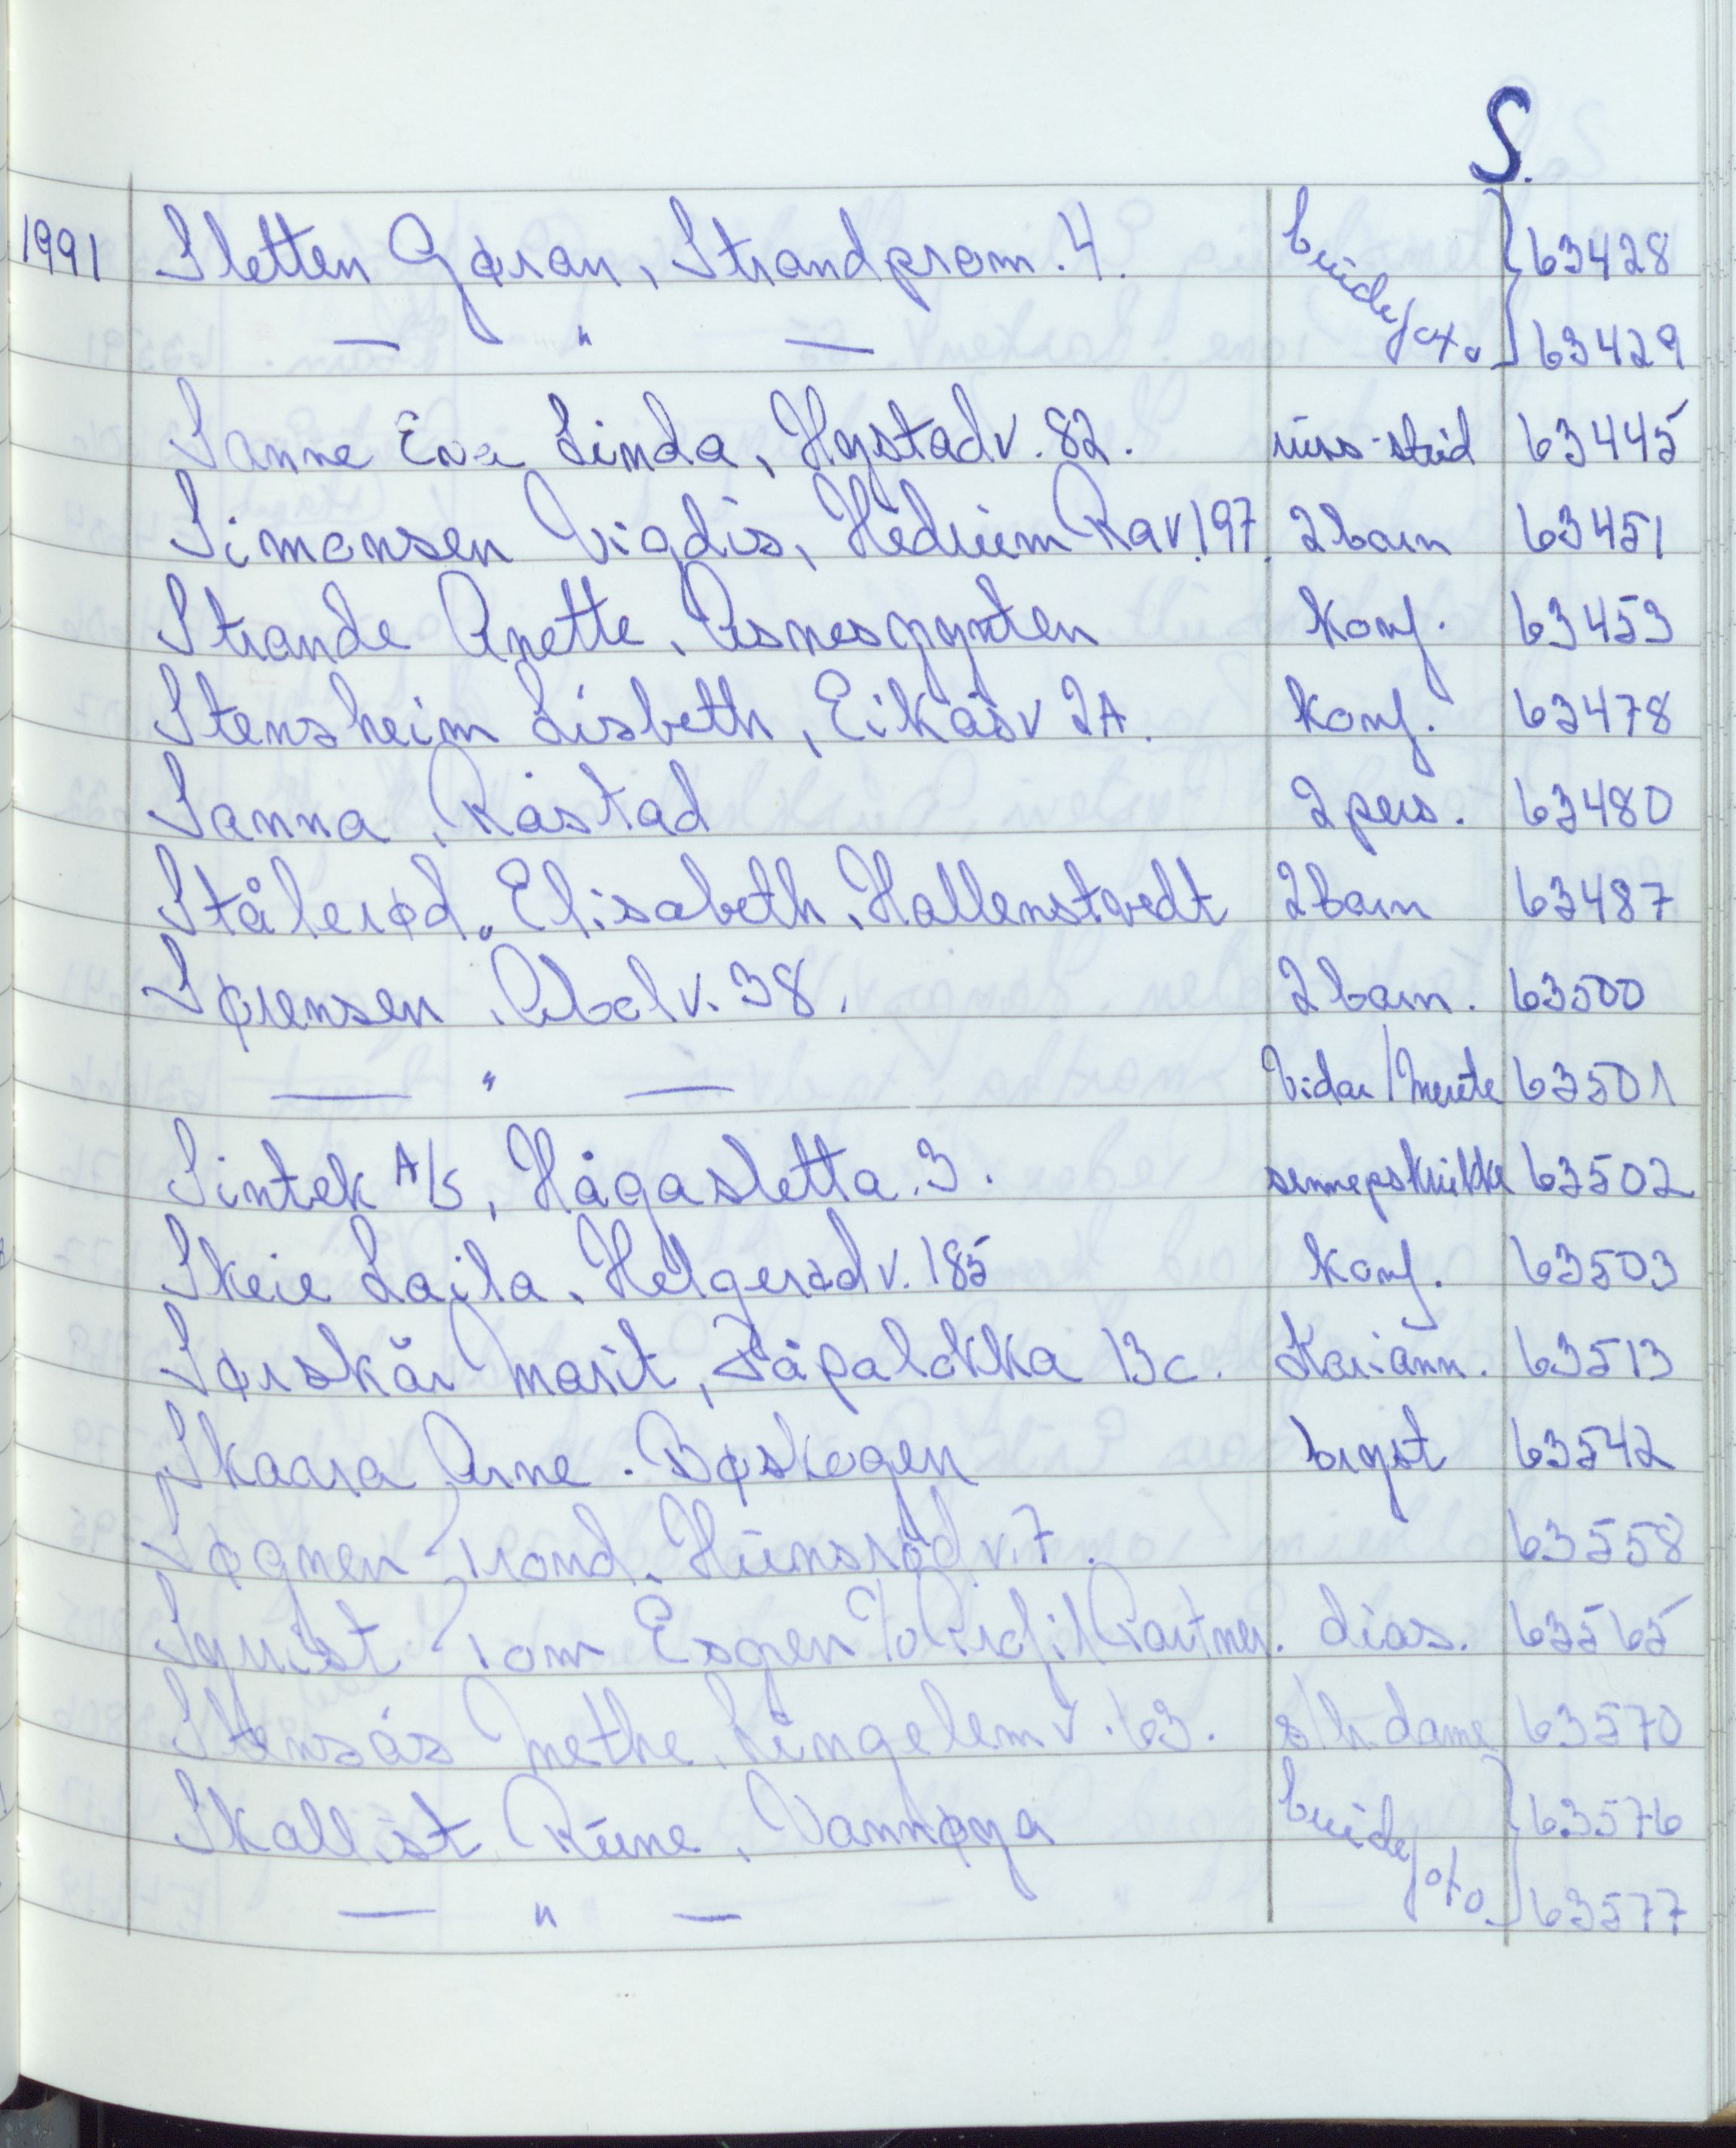 S.
1991 Sletten Gøran, Strandprom. 4. brudefoto. 63428
— " — 63429
Sanne Eva Linda, Hystadv. 82. russ-stud 63445
Simonsen Vigdis, Hedrum Rav. 197. 2 barn 63451
Strande Anette, Asnesgynten konf. 63453
Stensheim Lisbeth, Eikåsv 2A. konf. 63478
Sanna, Råstad 2 pers. 63480
Stålerød, Elisabeth, Hallenstvedt 2 barn 63487
Sørensen, v. 38. 2 barn. 63500
— " — Vidar/Merete 63501
Sintek A/S, Hågasletta. 3. sennepskrukke 63502
Skeie Laila, Helgerødv. 185 konf. 63503
Sørskår Marit, Såpaløkka 13c. Kariann. 63513
Skaara Arne. Bøskogen bryst 63542
Søgnen Trond, Hunsrødv. 7. 63558
Tom Espen dias. 63565
Stensås Methe, Lingelemv. 63. s/h. dame 63570
Skallist Rune, Vannøya brudefoto 63576
— " — 63577